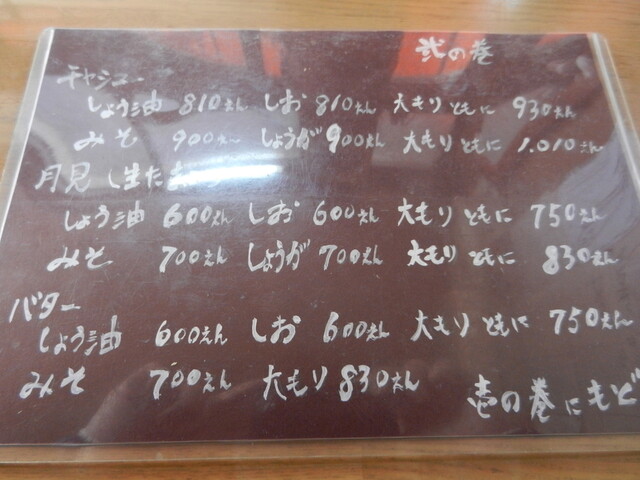 弐の巻
チャシュー
しょう油 810えん しお 810えん 大もり ともに 930えん
みそ 900えん しょうが 900えん 大もり ともに 1.010えん
月見 生たま
しょう油 600えん しお 600えん 大もり ともに 750えん
みそ 700えん しょうが 700えん 大もり ともに 830えん
バター
しょう油 600えん しお 600えん 大もり ともに 750えん
みそ 700えん 大もり 830えん
壱の巻にもど